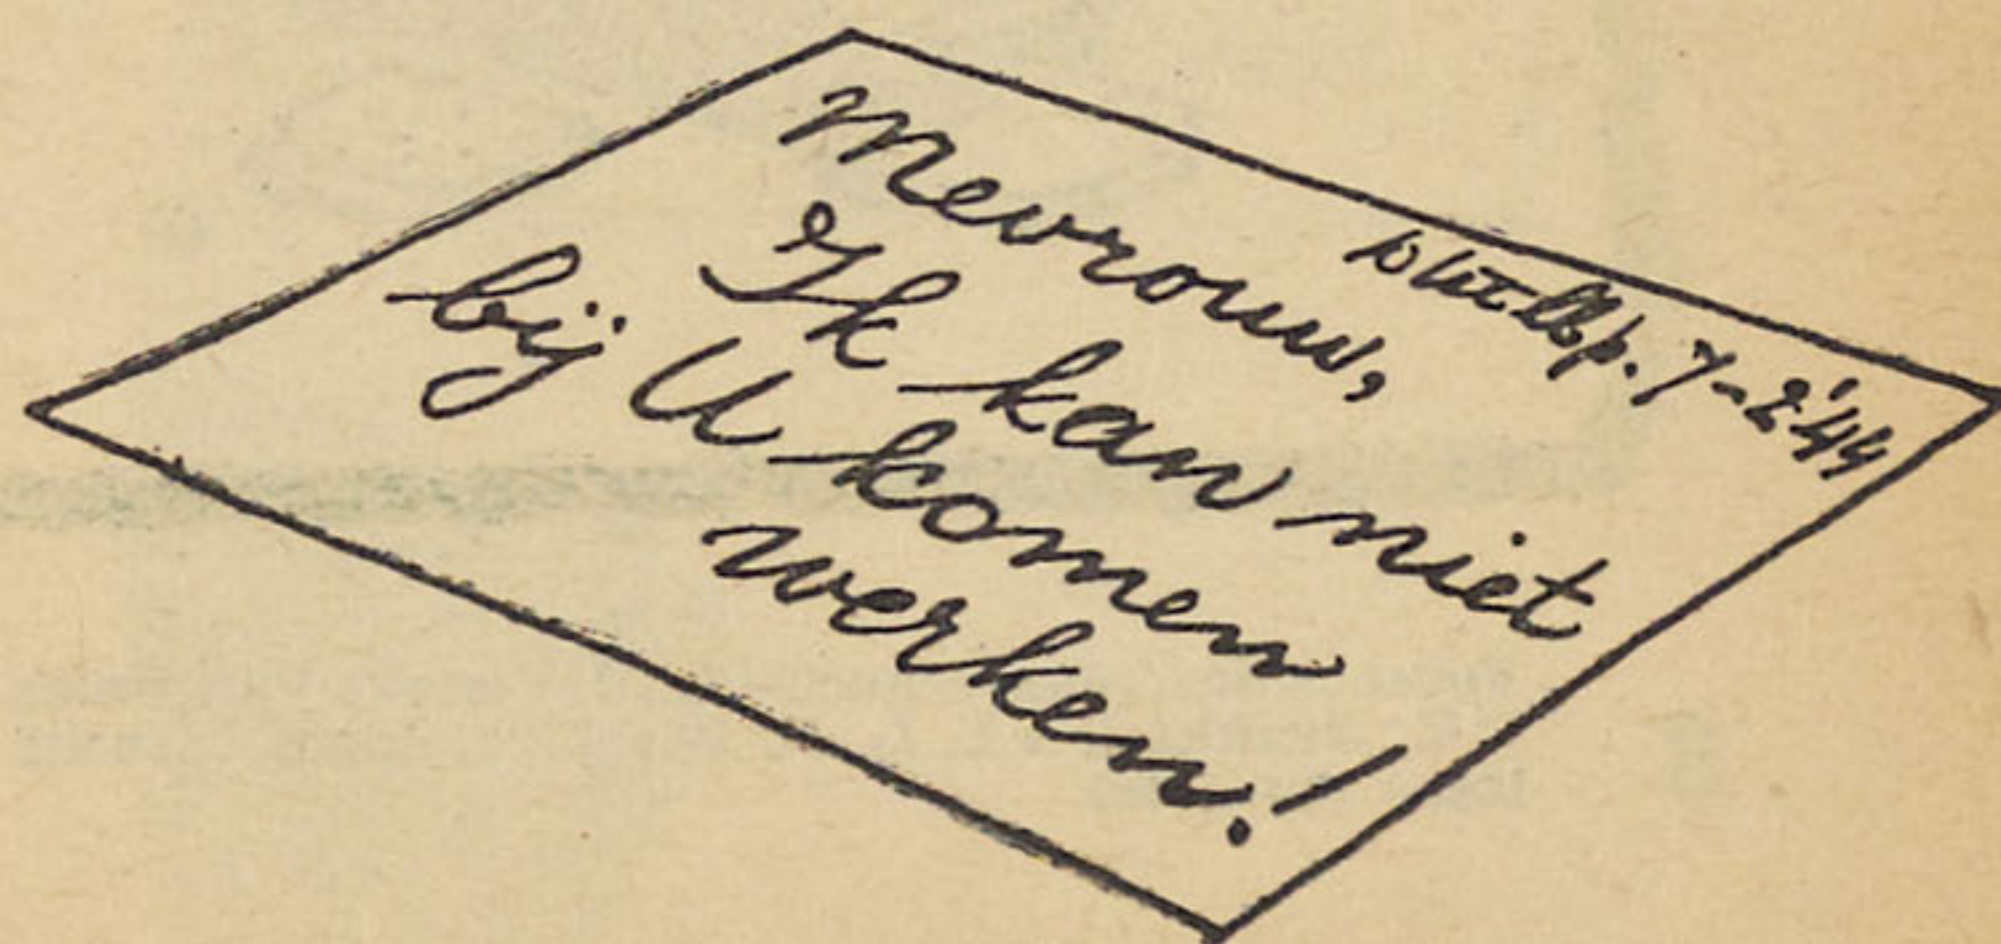 7-2'44
Mevrouw,
Ik kan niet
bij U komen
werken!